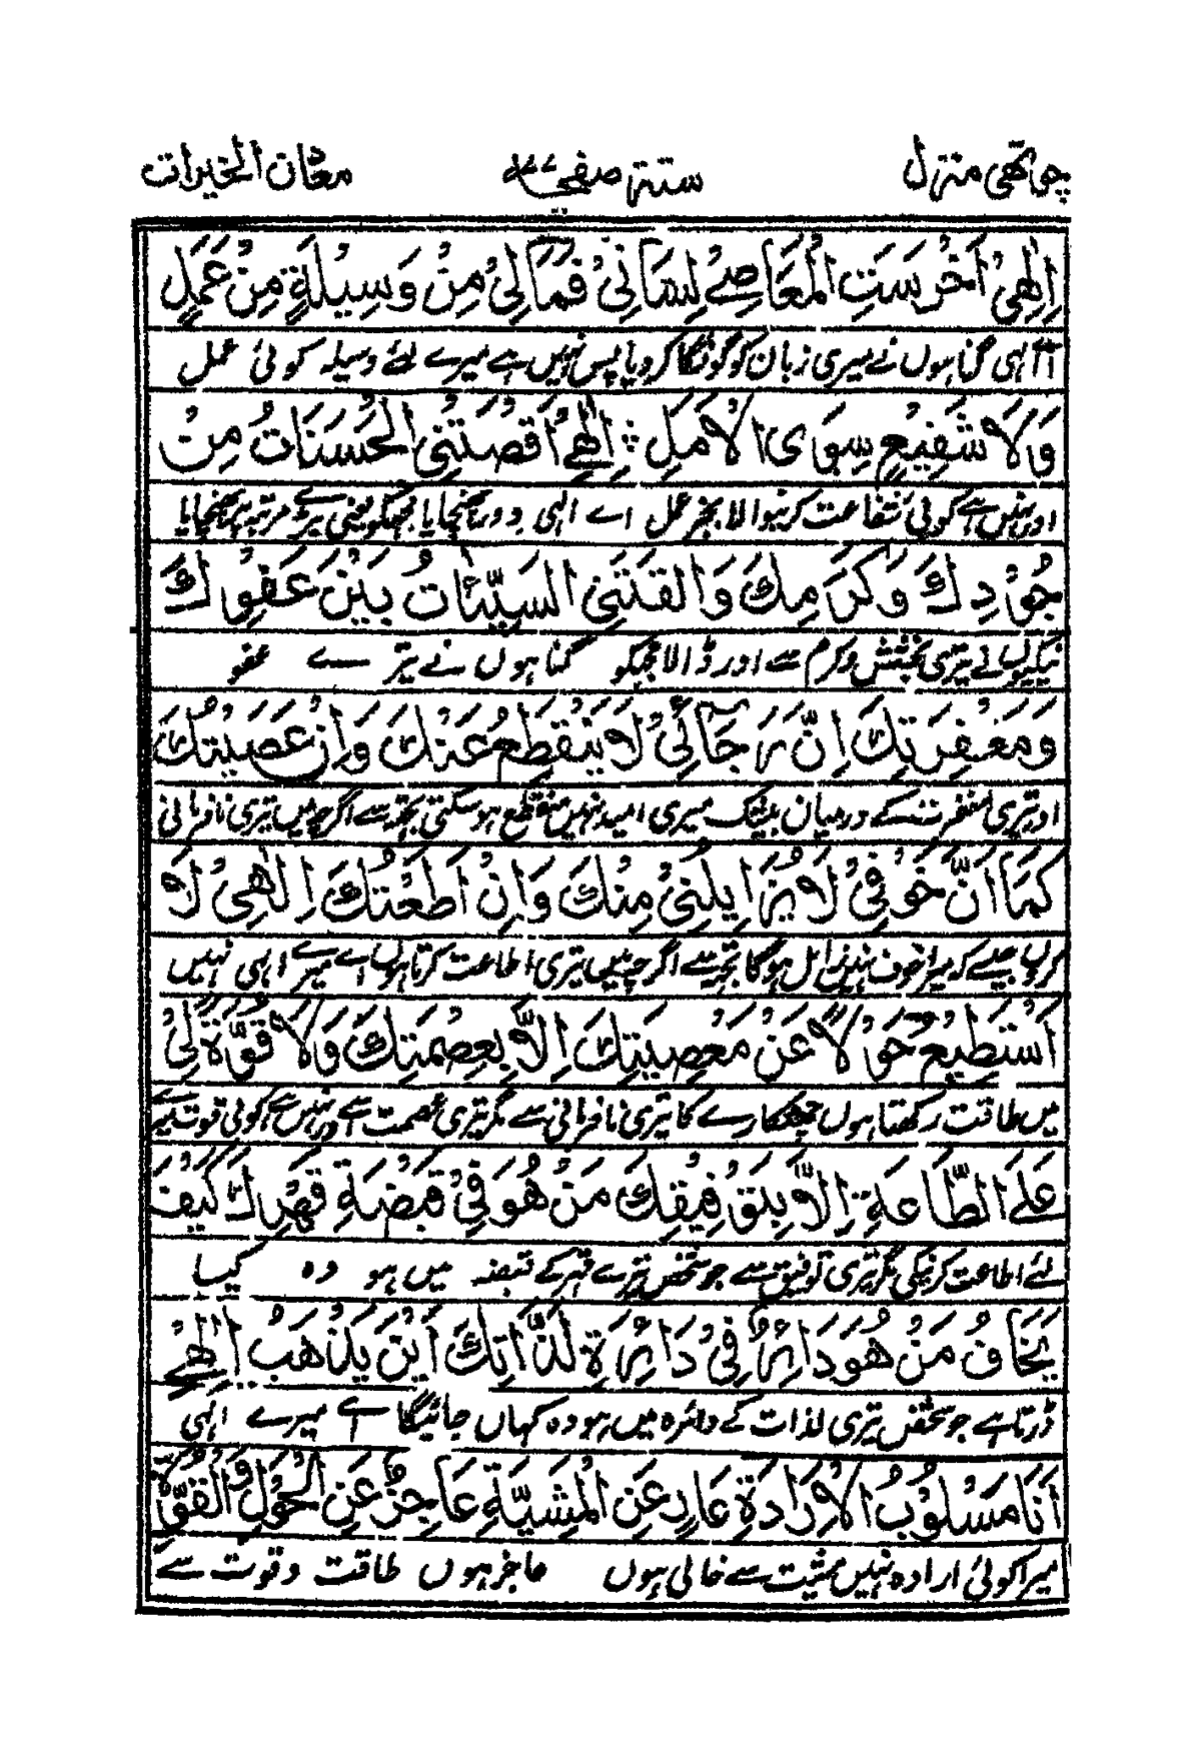 چوتھی منزل ستتر صفحہ ۷۷ معدن الخیرات
اِلٰهِيْ اَخْرَسَتِ الْمَعَاصِيْ لِسَانِيْ فَمَالِيْ مِنْ وَسِيْلَةٍ مِنْ عَمَلٍ
اے الٰہی گناہوں نے میری زبان کو گونگا کر دیا پس نہیں ہے میرے لئے وسیلہ کوئی عمل
وَلَا شَفِيْعٍ سِوَى الْاَمَلِ اِلٰهِيْ اَقْصَتْنِى الْحَسَنَاتُ مِنْ
اور نہیں ہے کوئی شفاعت کرنیوالا بجز عمل اے الٰہی دور پہنچایا مجھکو یعنی بڑے مرتبہ پر پہنچایا
جُوْدِكَ وَكَرَمِكَ وَالْقَتْنِى السَّيِّئَاتُ بَيْنَ عَفْوِكَ
نیکیوں نے تیری بخشش و کرم سے اور ڈالا مجھکو گناہوں نے تیرے عفو
وَمَغْفِرَتِكَ اِنَّ رَجَآئِيْ لَا يَنْقَطِعُ عَنْكَ وَاِنْ عَصَيْتُكَ
اور تیری مغفرت کے درمیان بیشک میری امید نہیں منقطع ہو سکتی تجھ سے اگرچہ میں تیری نافرمانی
كَمَا اَنَّ خَوْفِيْ لَا يُزَايِلُنِيْ مِنْكَ وَاِنْ اَطَعْتُكَ اِلٰهِيْ لَا
کروں جیسے کہ میرا خوف نہیں زایل ہوگا تجھ سے اگرچہ میں تیری اطاعت کرتا ہوں اے میرے الٰہی نہیں
اَسْتَطِيْعُ حَوْلًا عَنْ مَعْصِيَتِكَ اِلَّا بِعِصْمَتِكَ وَلَا قُوَّةَ لِيْ
میں طاقت رکھتا ہوں چھٹکارے کا تیری نافرمانی سے مگر تیری عصمت سے اور نہیں ہے کوئی قوت میرے
عَلَى الطَّاعَةِ اِلَّا بِتَوْفِيْقِكَ مَنْ هُوَ فِيْ قَبْضَةِ قَهْرِكَ كَيْفَ
لئے اطاعت کرنیکی مگر تیری توفیق سے جو شخص تیرے قہر کے قبضہ میں ہو وہ کیا
يَخَافُ مَنْ هُوَ دَائِرٌ فِيْ دَائِرَةِ لَذَّاتِكَ اَيْنَ يَذْهَبُ اِلٰهِيْ
ڈرتا ہے جو شخص تیری لذات کے دائرہ میں ہو وہ کہاں جائیگا اے میرے الٰہی
اَنَا مَسْلُوْبُ الْاِرَادَةِ عَارٍ عَنِ الْمَشِيَّةِ عَاجِزٌ عَنِ الْحَوْلِ وَالْقُوَّةِ
میرا کوئی ارادہ نہیں مشیت سے خالی ہوں عاجز ہوں طاقت و قوت سے